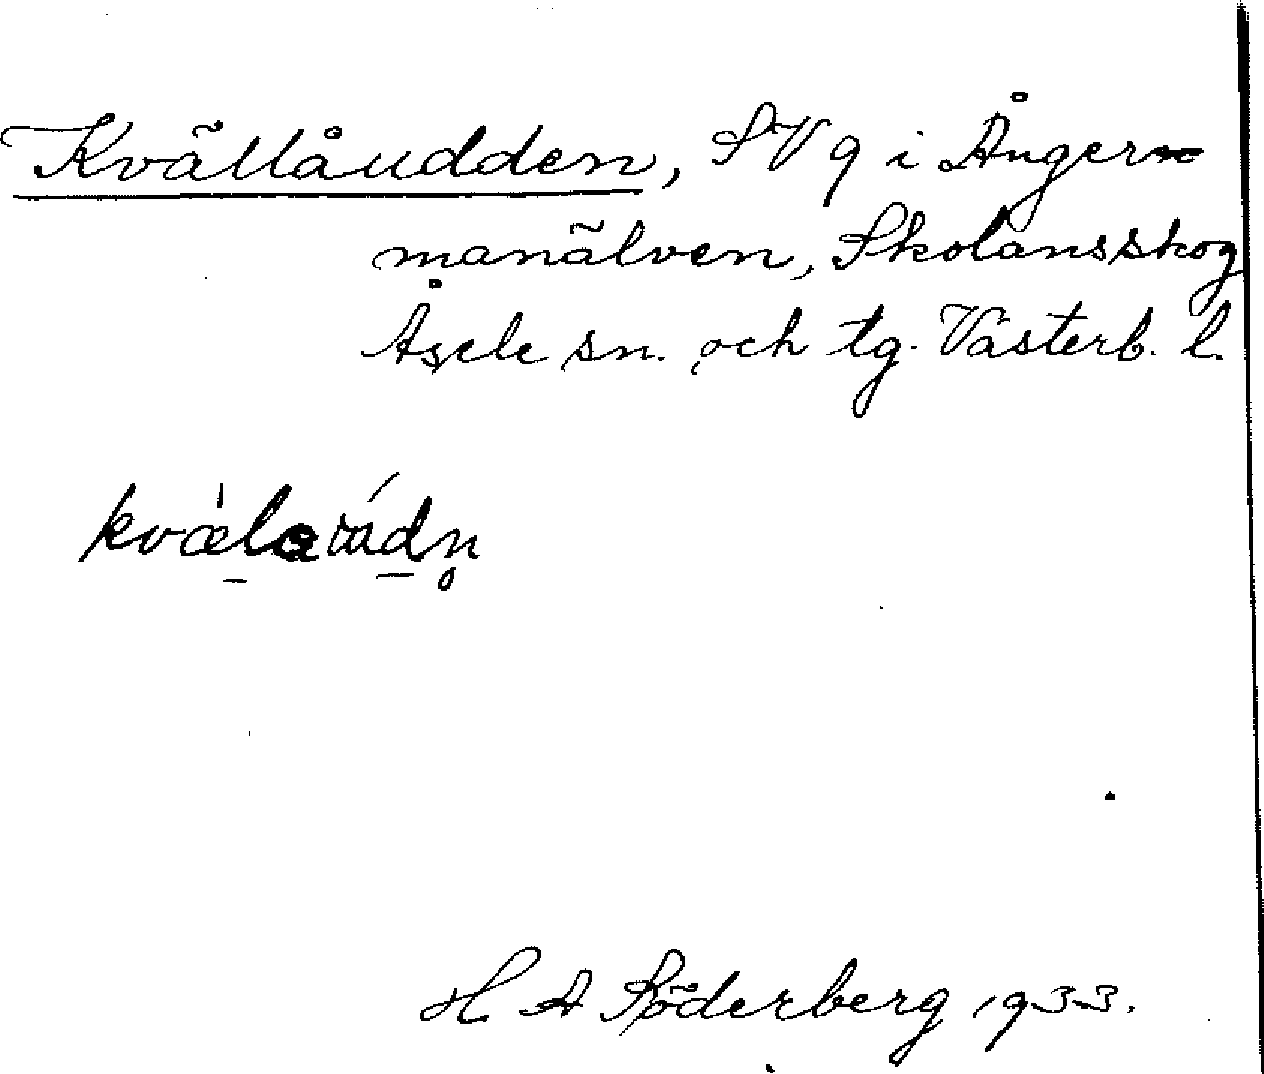 Kvällåudden, SV 9 i Ånger-
manälven, Skolansskog
Åsele sn. och tg. Västerb. l.
H A Söderberg 1933.